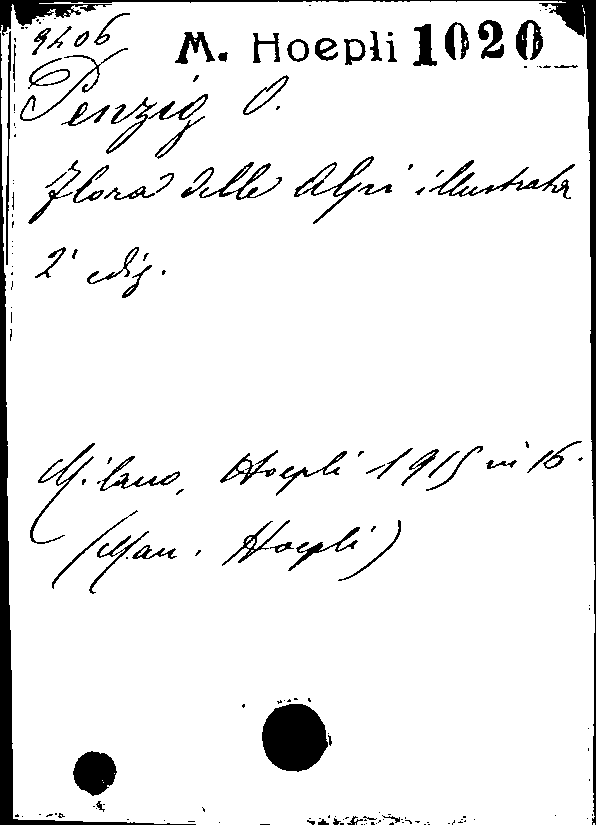 9206
M. Hoepli 1020
Penzig O.
Flora delle Alpi illustrata
2ª ediz.
Milano, Hoepli 1915 in 16.
(Man. Hoepli)